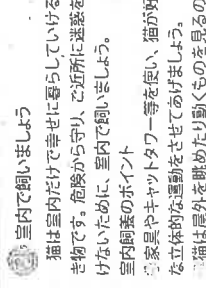 室内で飼いましょう
猫は室内だけで幸せに暮らしていける
き物です。危険から守り、ご近所に迷惑を
けないために、室内で飼いましょう。
室内飼養のポイント
家具やキャットタワー等を使い、猫が好
な立体的な運動をさせてあげましょう。
猫は屋外を眺めたり動くものを見るの